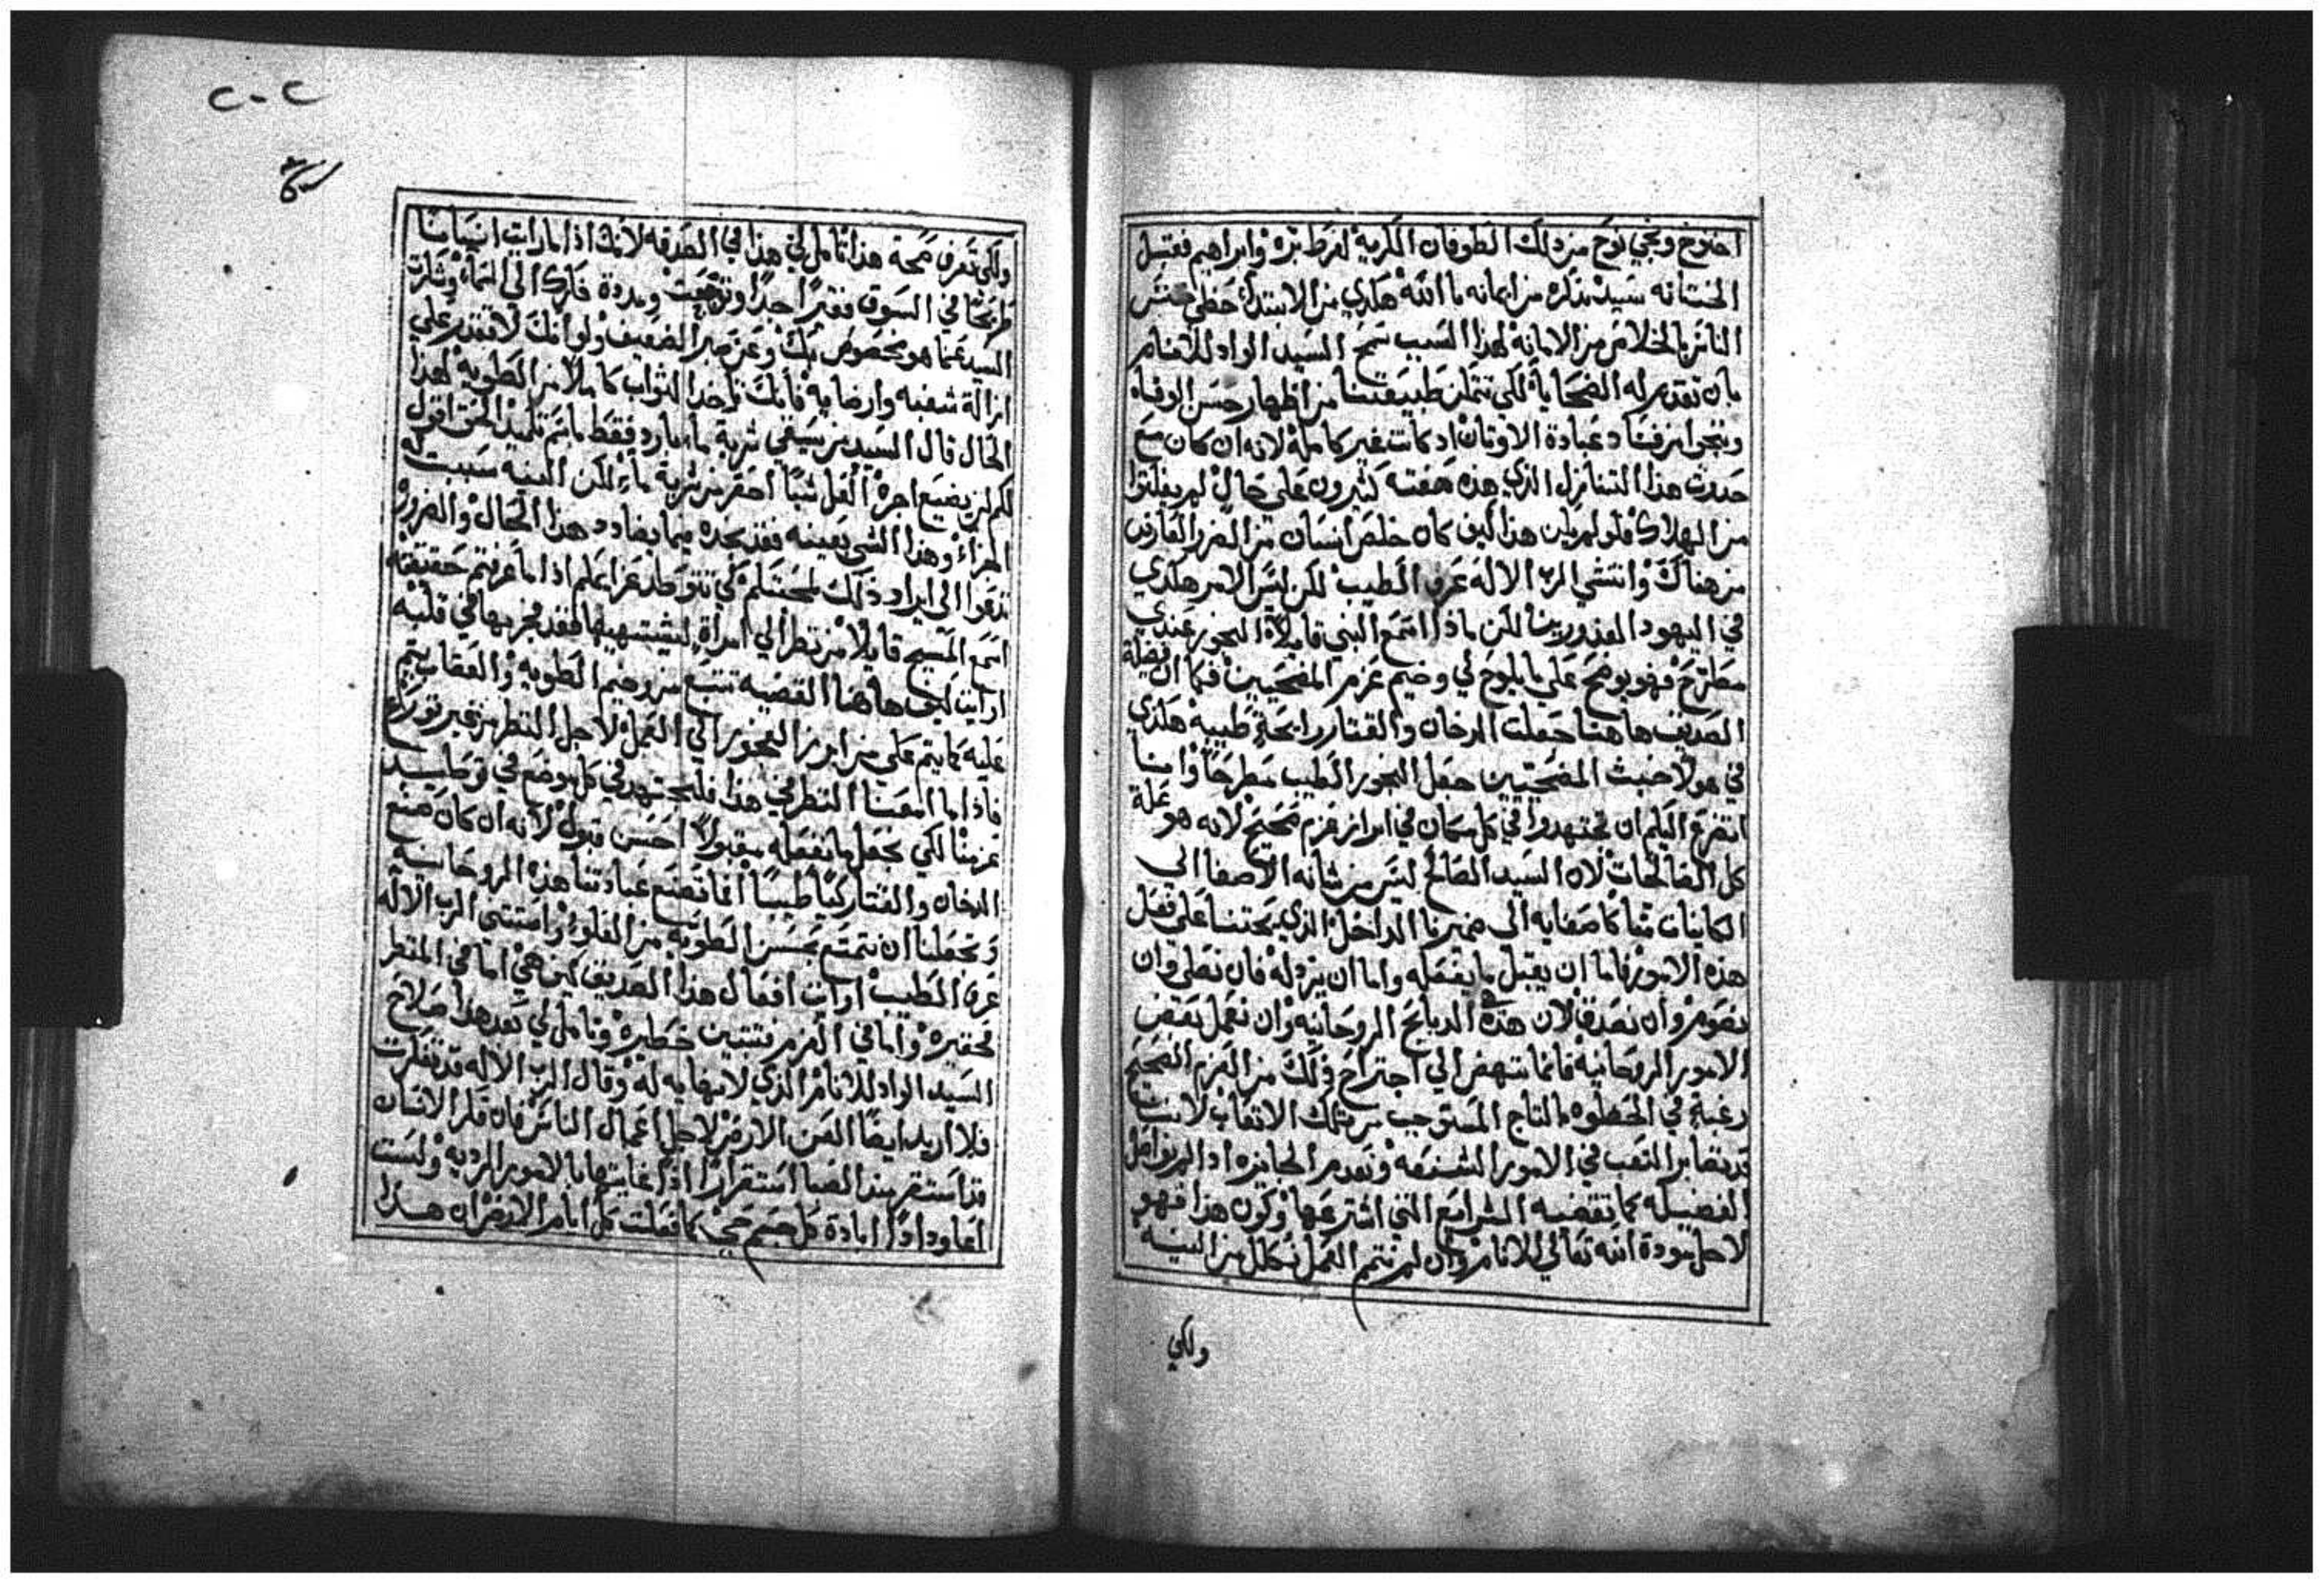 اخنوخ ونجي نوح من ذلك الطوفان الكريه لفرط بره وابراهيم فقبل
الختانه سيد بذكره من ايمانه ما الله هكدي من الابتدا حظي جنس
الناس بالخلاص من الامانه لهذا السبب سمح السيد الواد للانام
بان تقدم له الضحايا لكي تتمكن طبيعتنا من اظهار حسن الوفاه
وينجوا من فساد عبادة الاوتان اد كانت غير كامله لانه ان كان مع
حدوث هذا التنازل الذي هذه صفته كثيرون علي حال لم يفلتوا
من الهلاك فلو لم يكن هذا كيف كان خلص انسان من الضرر العارض
من هناك وانتشي الرب الاله عرف الطيب لكن ليس الامر هكدي
في اليهود المغدورين لكن ماذا اسمع النبي قايلا البخور عندي
مطرح فهو يوضح علي ما يلوح لي وخيم عزم المضحيين فكما ان فضلة
الصديق هاهنا جعلت الدخان والقتار رايحة طيبه هكدي
في هولا خبث المضحيين جعل البخور الطيب مطرحا وانا
اتضرع اليكم ان تجتهدوا في كل مكان في ابراز عزم صحيح لانه هو علة
كل الصالحات لان السيد الصالح ليس من شانه الاصغا الي
الكاينات منا كاصغايه الي ضميرنا الداخل الذي يحتنا علي فعل
هذه الامور فاما ان يقبل ما يفعله واما ان يرذله فان نصلي وان
نصوم وان نصدق لان هذه الدبايح الروحانيه وان نعمل بعض
الامور الروحانيه فانما ننهض الي اجتراح ذلك من العزم الصحيح
رغبة في الحظوه بالتاج المستوجب من تلك الاتعاب لاننا
قد نصابر التعب في الامور الشنعه ونعدم الجايزه اذا لم نواصل
الفضيله كما تقتضيه الشرايع التي اشترعها وكون هذا فهو
لاجل مودة الله تعالي للانام وان لم نتمم العمل نكلل من النيه
ولكي
٢٠٢
ولكي تعرف صحة هذا تامل لي هذا في الصدقه لانك اذا ما رايت انسانا
طريحا في السوق فقيرا جدا وتوجعت ومددة فكرك الي السما وشكرت
السيد عما هو مخصوص بك وعن صبر الضعيف ولو انك لا تقتدر علي
ازالة شغبه وارضايه فانك تاخذ الثواب كاملا من الطويه لهذا
الحال قال السيد من يسقي شربة ما بارد فقط باسم تلميذ الحق اقول
لكم لن يضيع اجره القل شيا احقر من شربة ماء لكن النيه سببت له
الجزاء وهذا الشي بعينه فقد نجده فيما يضادد هذا الحال والضروره
تدعوا الي ايراد ذلك لمحبتكم كي تتوطد عزايمكم اذا ما عرفتم حقيقته
اسمع المسيح قايلا من نظر الي امراة ليشتهيها فقد فجر بها في قلبه
ارايت كيف هاهنا القضيه تتبع من وخيم الطويه والعقاب يتم
عليه كما يتم علي من ابرز الفجور الي العمل لاجل النظر من غير تورع
فاذا ما امعنا النظر في هذا فلنجتهد في كل موضع في توطيد
عزمنا لكي نجعل ما نفعله مقبولا احسن قبول لانه ان كان صنع
الدخان والقتار زكيا طيبا افما تصنع عبادتنا هذه الروحانيه
وتجعلنا ان نتمتع بحسن الطويه من العلوء واستنشي الرب الاله
عرف الطيب ارايت افعال هذا الصديق كيف هي اما في المنظر
فحقيره واما في العزم فتتبين خطيره وتامل لي بعد هذا صلاح
السيد الواد للانام الذي لا نهايه له وقال الرب الاله قد تفكرت
فلا اريد ايضا العن الارض لاجل اعمال الناس فان فكر الانسان
قد استقر منذ الصبا استقرارا اذا عانيتها بالامور الرديه ولست
اعاود اذا ابادة كل جسم حي كما فعلت كل ايام الارض ان هذا